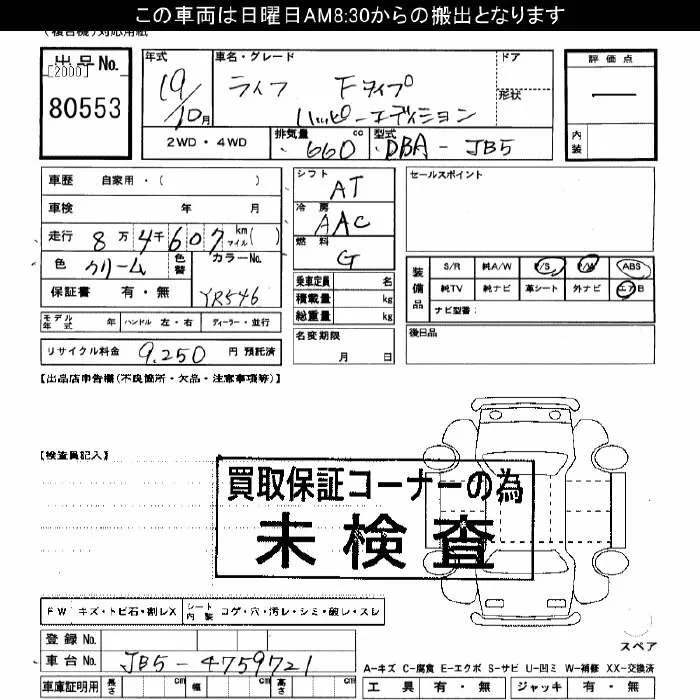 この車両は日曜日AM8:30からの搬出となります
(複合機)対応用紙
出品No.
[2000]
80553
年式
19/10月
車名・グレード
ライフ Fタイプ
ハッピーエディション
ドア
形状
評価点
—
内装
2WD・4WD
排気量
660 cc
型式
DBA-JB5
車歴 自家用・( )
車検 年 月
走行 8万4千607 km マイル( )
色 クリーム
色替
カラーNo.
YR546
保証書 有・無
モデル年式 年
ハンドル 左・右
ディーラー・並行
リサイクル料金 9,250 円 預託済
シフト
AT
冷房
AAC
燃料
G
乗車定員 名
積載量 kg
総重量 kg
名変期限
月 日
セールスポイント
装備品
S/R 純A/W P/S P/W ABS
純TV 純ナビ 革シート 外ナビ エアB
ナビ型番:
後日品
【出品店申告欄(不良箇所・欠品・注意事項等)】
【検査員記入】
買取保証コーナーの為
未検査
FW キズ・トビ石・割レX
シート内装 コゲ・穴・汚レ・シミ・破レ・スレ
登録No.
車台No. JB5-4759721
車庫証明用 長さ cm 幅 cm 高さ cm
スペア
A-キズ C-腐食 E-エクボ S-サビ U-凹ミ W-補修 XX-交換済
工具 有・無 ジャッキ 有・無